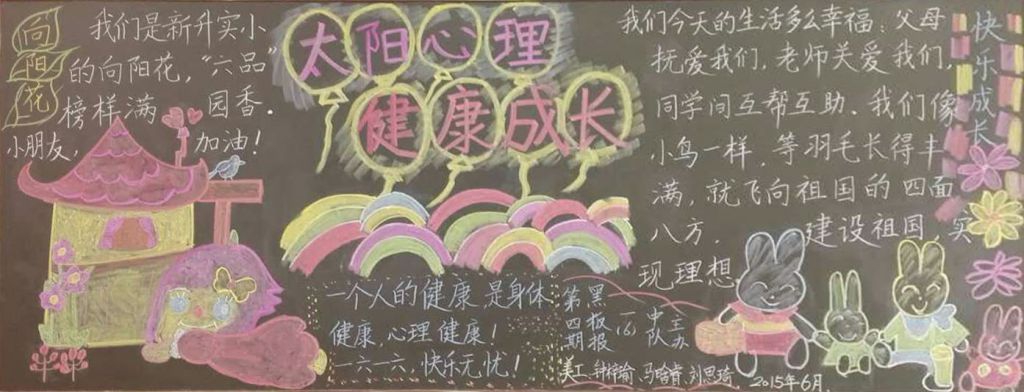 向阳花
我们是新升实小
的向阳花，“六品”
榜样满园香。
小朋友，加油！
太阳心理
健康成长
一个人的健康是身体
健康，心理健康！
一六一六，快乐无忧！
第四期
黑板报
一（6）
中队
美工
2015年6月
我们今天的生活多么幸福：父母
抚爱我们，老师关爱我们，
同学间互帮互助．我们像
小鸟一样，等羽毛长得丰
满，就飞向祖国的四面
八方．建设祖国，实
现理想
快乐成长